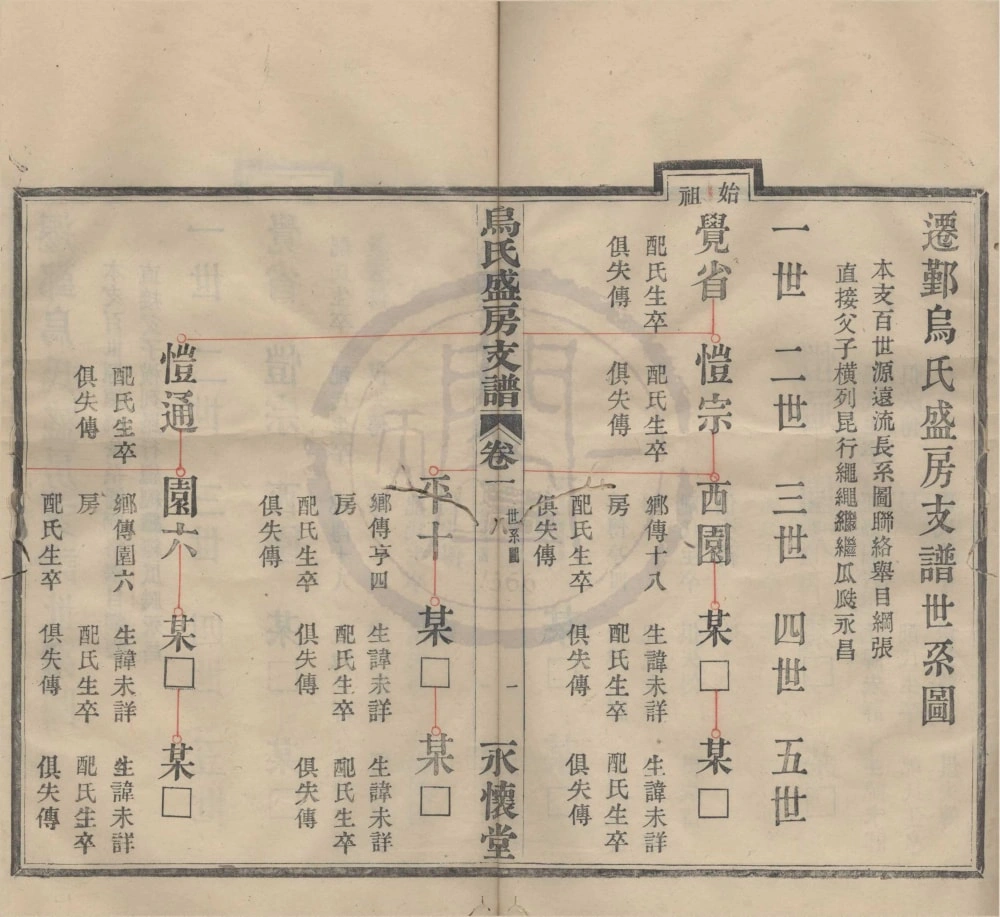 遷鄞烏氏盛房支譜世系圖
本支百世源遠流長系圖聯絡舉目綱張
直接父子橫列昆行繩繩繼繼瓜瓞永昌
一世 二世 三世 四世 五世
始祖
覺省 愷宗 西園 某□ 某□
配氏生卒 配氏生卒 鄉傳十八 生諱未詳 生諱未詳
俱失傳 俱失傳 房 配氏生卒 配氏生卒
配氏生卒 俱失傳 俱失傳
俱失傳
烏氏盛房支譜 卷一 世系圖 八 一 永懷堂
平十 某□ 某□
鄉傳亨四 生諱未詳 生諱未詳
房 配氏生卒 配氏生卒
配氏生卒 俱失傳 俱失傳
俱失傳
愷通 園六 某□ 某□
配氏生卒 鄉傳園六 生諱未詳 生諱未詳
俱失傳 房 配氏生卒 配氏生卒
配氏生卒 俱失傳 俱失傳